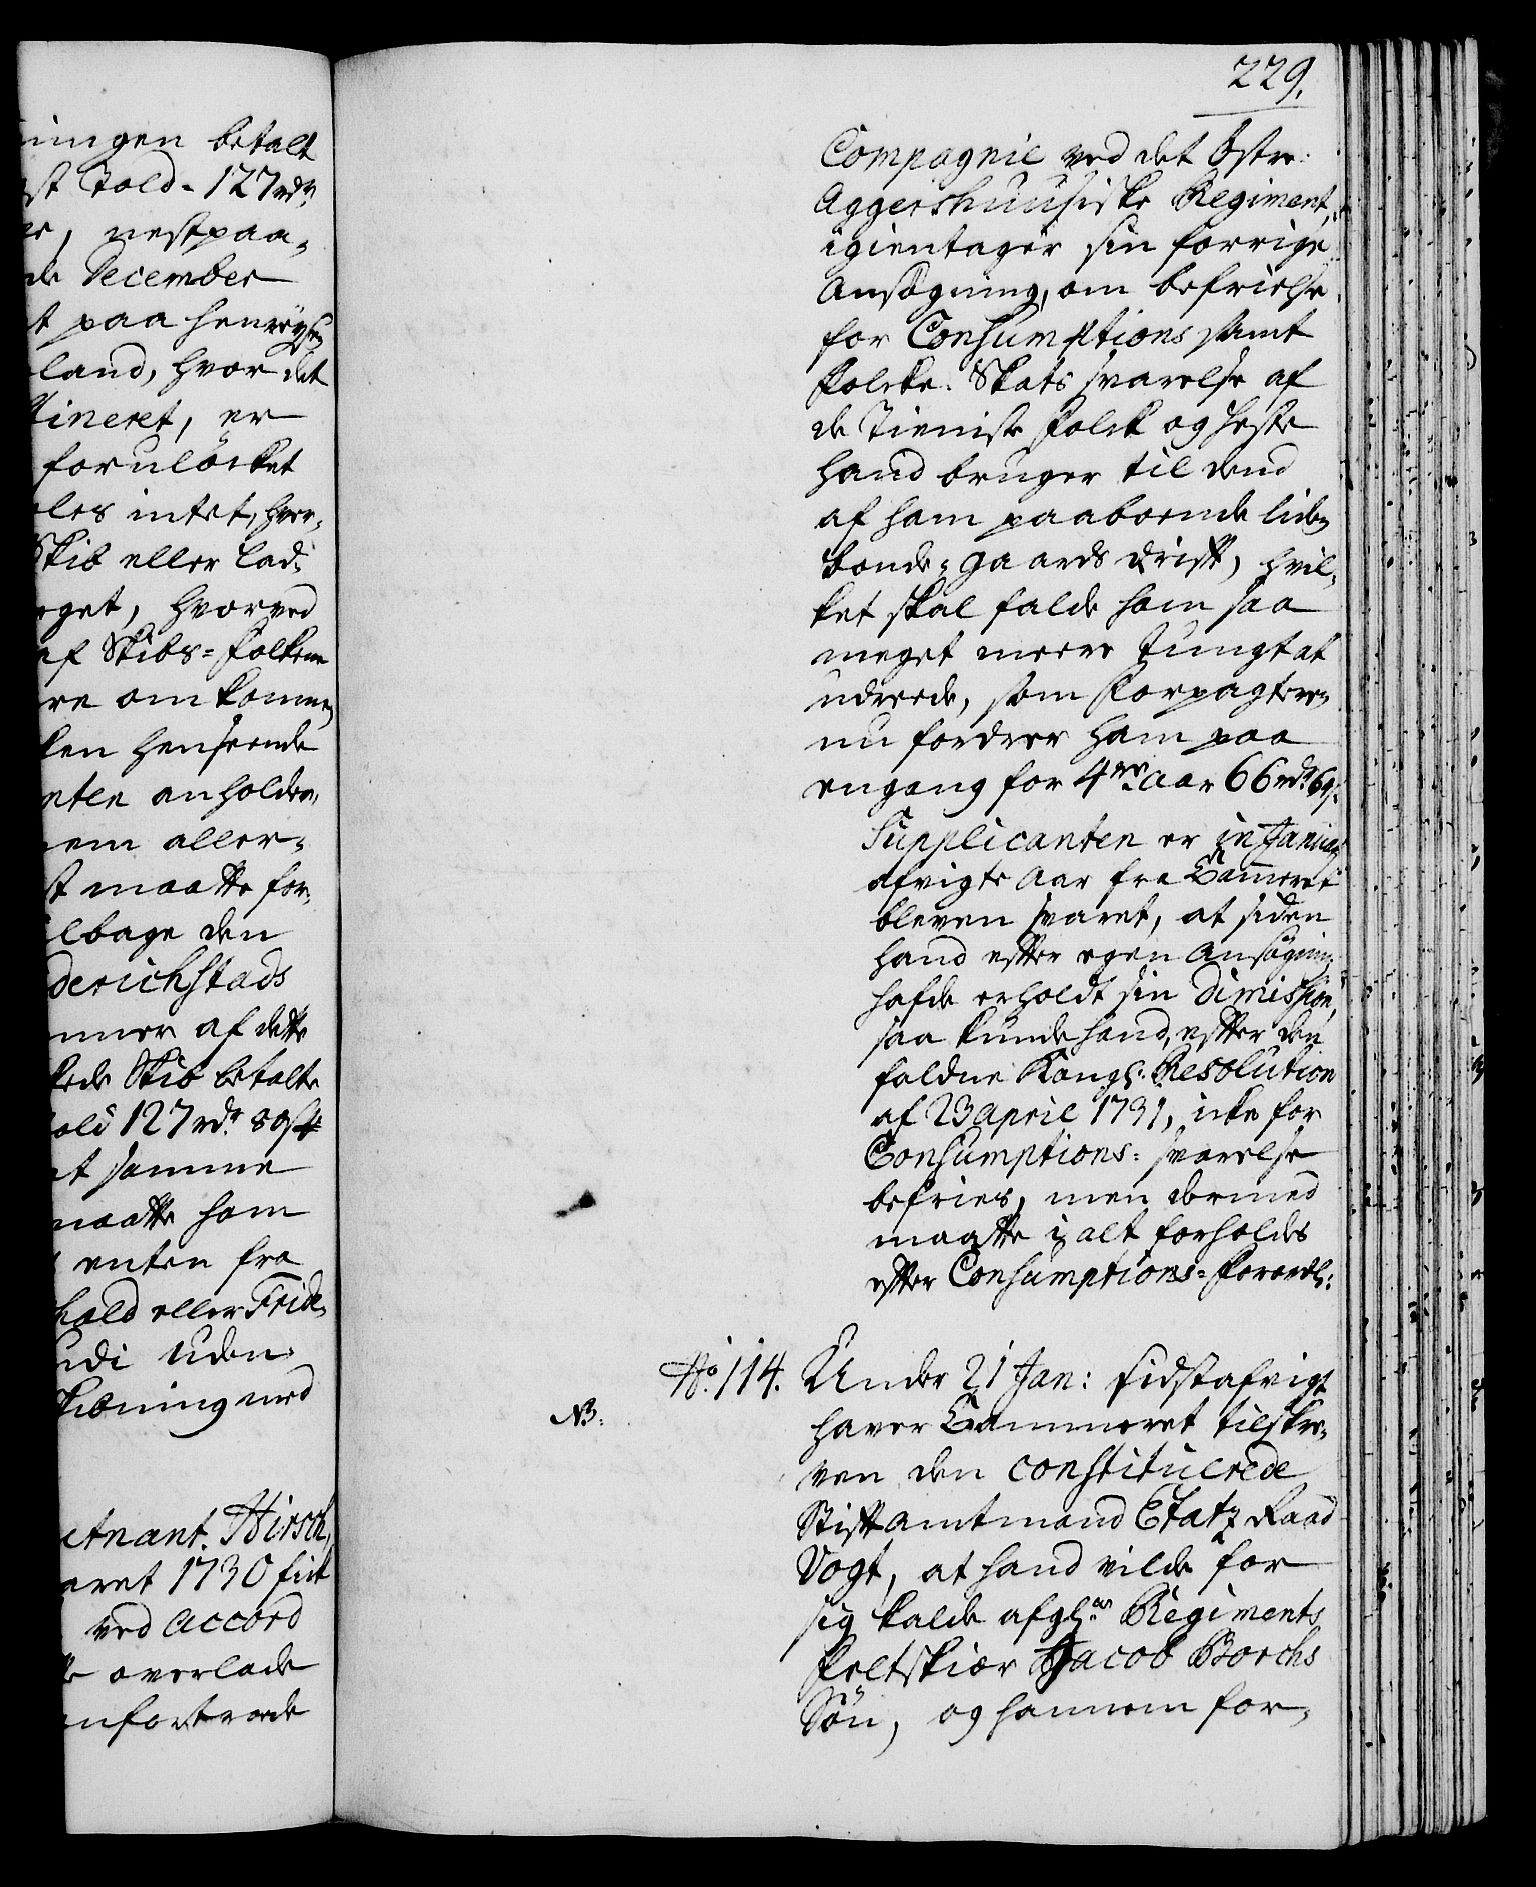 ningen betalt
st Told - 127 rdr
e, nestpaa-
de December
t paa henreysen
land, hvor det
tineret, er
forulöcket
eles intet, hver-
Skib eller lad-
rget, hvorved
af Skibs-folkene
re omkommen
ken henseende
nten anholder,
em aller-
st maatte for-
ilbage den
derichstads
nmer af dette
kede Skib betalte
old 127 rdr. 80 s
at samme
maatte ham
enten fra
hald eller Frid-
udi uden
kibning med
etnant. Hirsch,
aret 1730 fick
ved accord
te overlade
nfortroede
229.
Compagnie ved det östre
Aggershuusiske Regiment,
igientager sin forrige
Ansögning, om befrielse
for Consumptions samt
folcke-Skats svarelse af
de Tieniste folck og heste
hand bruger til dend
af ham paaboende liden
bonde-gaards drift, hvil-
ket skal falde ham saa
meget meere tungt at
udreede, som Forpagteren
nu fordrer ham paa
engang for 4re aar 66 rdr 69 s.
Supplicanten er in Januarij
afvigte aar fra Cammeret
bleven svaret, at siden
hand efter egen Ansögning
hafde erholdt sin dimission,
saa kunde hand, efter den
faldne Kongl: Resolution
af 23 april 1731, icke for
Consumptions-svarelse
befries, men dermed
maatte i alt forholdes
efter Consumptions-forordn:
No. 114. Under 21 Jan: sidstafvigt
NB: haver Cammeret tilskre-
ven den constituerede
Stiftamtmand Etatz Raad
Vogt, at hand vilde for
sig kalde afgl:en Regiments
feltskiær Jacob Borchs
Sön, og hannem for-